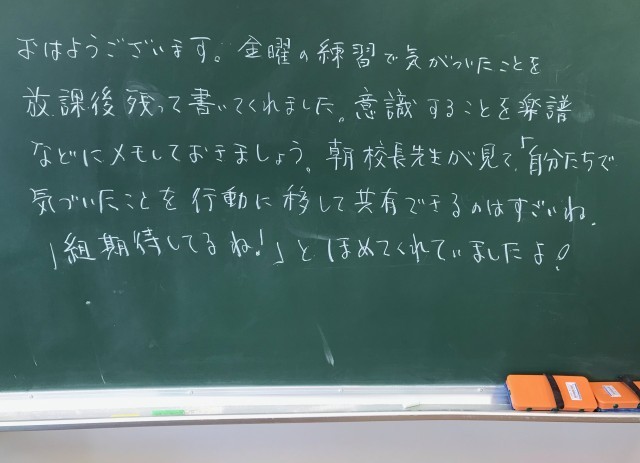 おはようございます。金曜の練習で気がついたことを
放課後残って書いてくれました。意識することを楽譜
などにメモしておきましょう。朝校長先生が見て、「自分たちで
気づいたことを行動に移して共有できるのはすごいね。
1組期待してるね!」とほめてくれていましたよ!